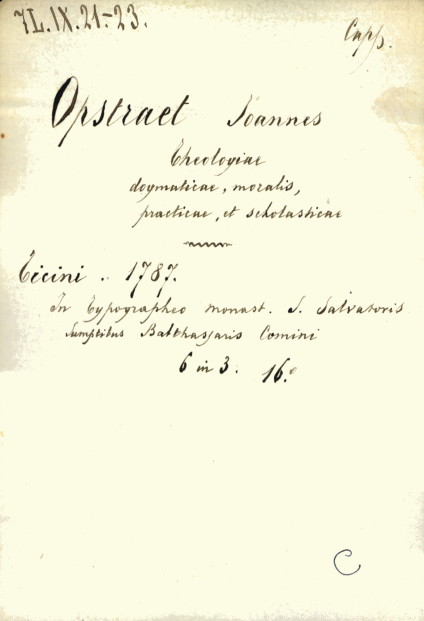 7L.IX.21-23.
Capp.
Opstraet Joannes
Theologiae
dogmaticae, moralis,
practicae, et scholasticae
Ticini . 1787.
In Typographeo monast. S. Salvatoris
Sumptibus Balthassaris Comini
6 in 3. 16.°
C